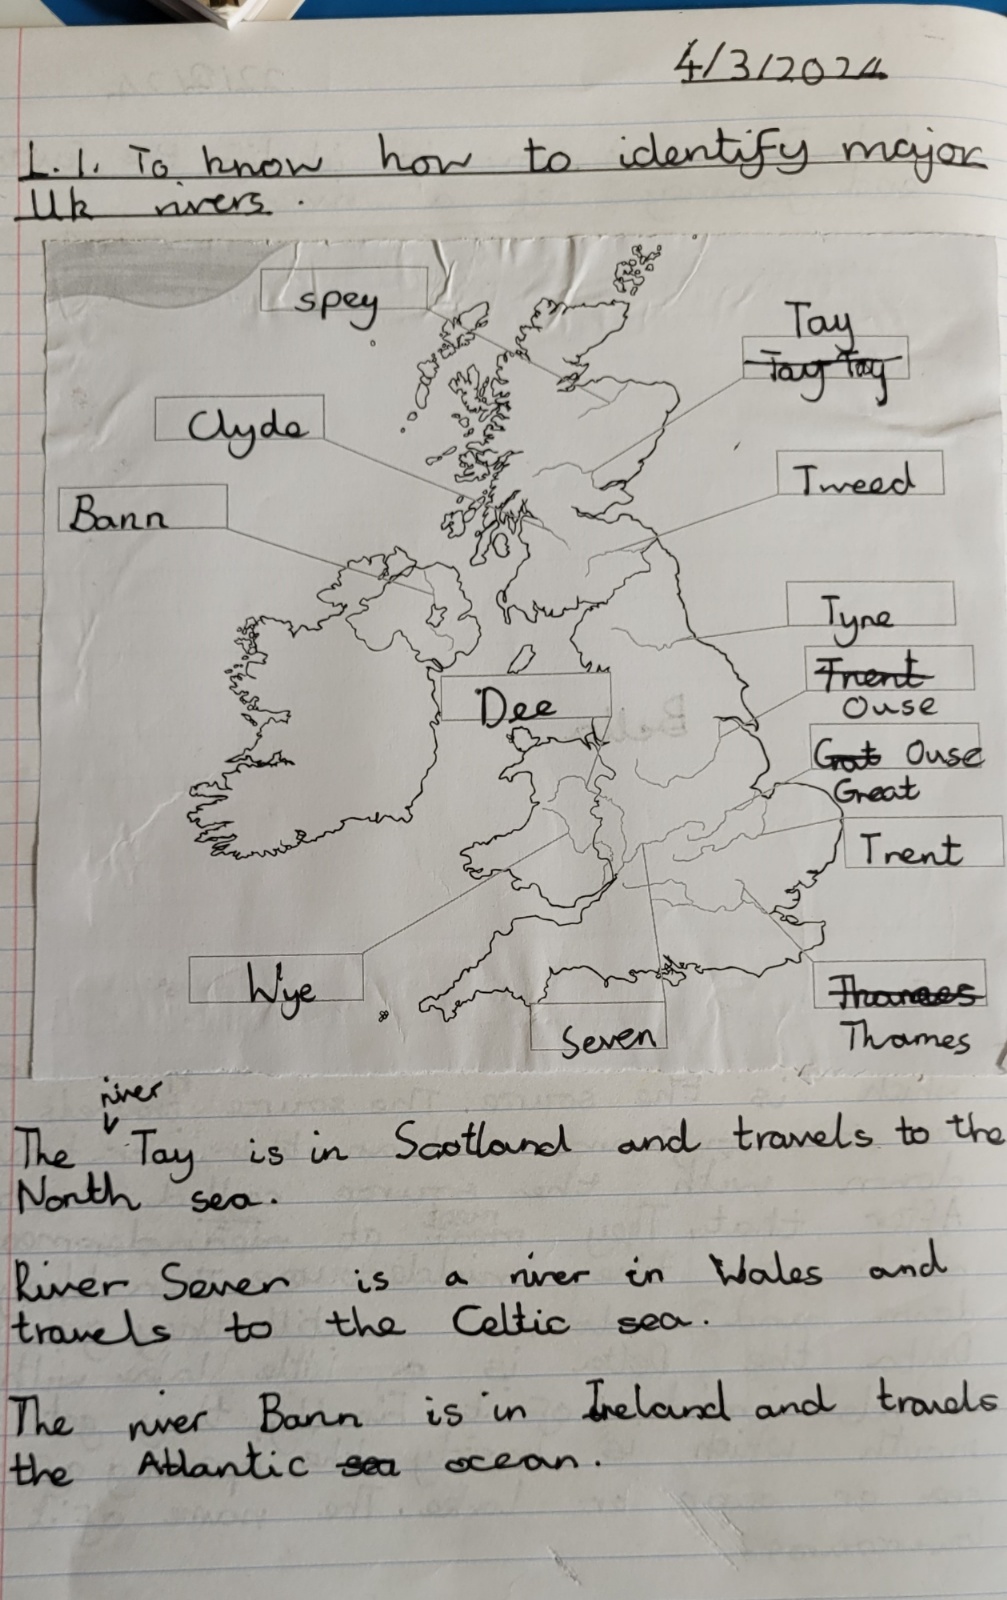 4/3/2024
L.I. To know how to identify major
Uk rivers.
spey
Tay
Tay Tay
Clyde
Tweed
Bann
Tyne
Trent
Ouse
Dee
Ouse
Great
Trent
Wye
Seven
Thames
river
The Tay is in Scotland and travels to the
North sea.
River Seven is a river in Wales and
travels to the Celtic sea.
The river Bann is in Ireland and travels
the Atlantic sea ocean.